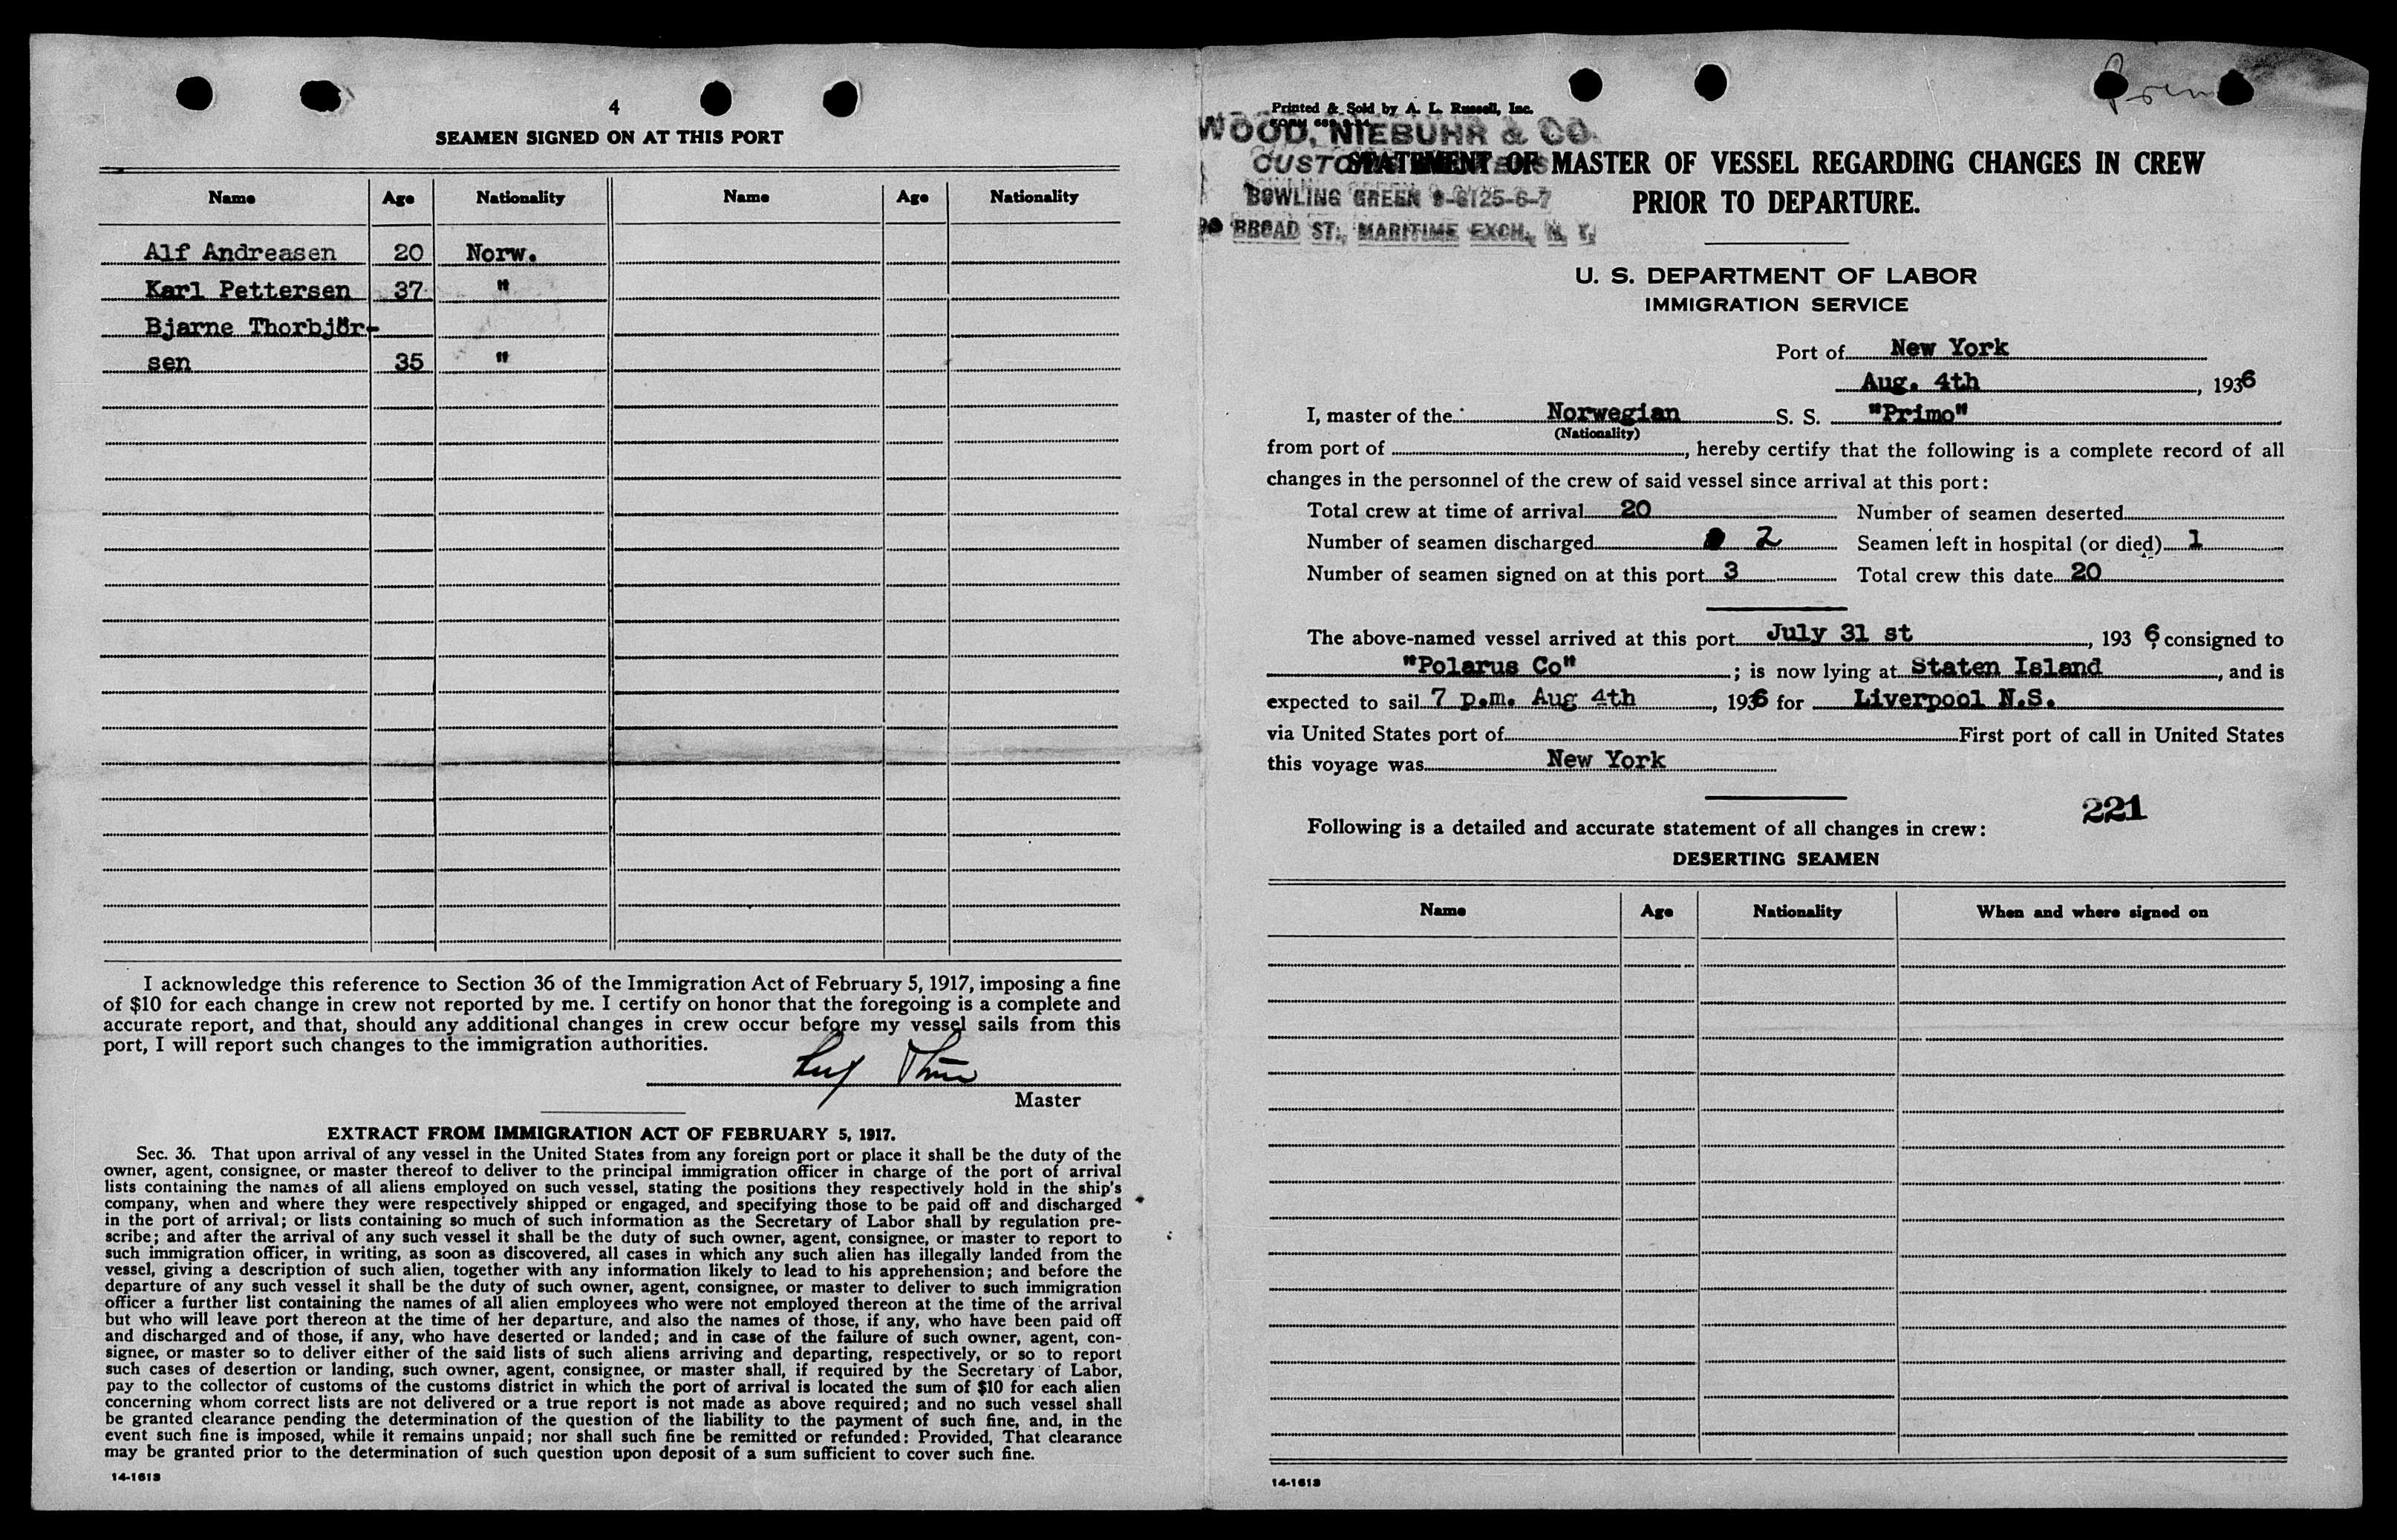 4
SEAMEN SIGNED ON AT THIS PORT
Name Age Nationality Name Age Nationality
Alf Andreasen 20 Norw.
Karl Pettersen 37 "
Bjarne Thorbjör-
sen 35 "
I acknowledge this reference to Section 36 of the Immigration Act of February 5, 1917, imposing a fine
of $10 for each change in crew not reported by me. I certify on honor that the foregoing is a complete and
accurate report, and that, should any additional changes in crew occur before my vessel sails from this
port, I will report such changes to the immigration authorities.
Master
EXTRACT FROM IMMIGRATION ACT OF FEBRUARY 5, 1917.
Sec. 36. That upon arrival of any vessel in the United States from any foreign port or place it shall be the duty of the
owner, agent, consignee, or master thereof to deliver to the principal immigration officer in charge of the port of arrival
lists containing the names of all aliens employed on such vessel, stating the positions they respectively hold in the ship's
company, when and where they were respectively shipped or engaged, and specifying those to be paid off and discharged
in the port of arrival; or lists containing so much of such information as the Secretary of Labor shall by regulation pre-
scribe; and after the arrival of any such vessel it shall be the duty of such owner, agent, consignee, or master to report to
such immigration officer, in writing, as soon as discovered, all cases in which any such alien has illegally landed from the
vessel, giving a description of such alien, together with any information likely to lead to his apprehension; and before the
departure of any such vessel it shall be the duty of such owner, agent, consignee, or master to deliver to such immigration
officer a further list containing the names of all alien employees who were not employed thereon at the time of the arrival
but who will leave port thereon at the time of her departure, and also the names of those, if any, who have been paid off
and discharged and of those, if any, who have deserted or landed; and in case of the failure of such owner, agent, con-
signee, or master so to deliver either of the said lists of such aliens arriving and departing, respectively, or so to report
such cases of desertion or landing, such owner, agent, consignee, or master shall, if required by the Secretary of Labor,
pay to the collector of customs of the customs district in which the port of arrival is located the sum of $10 for each alien
concerning whom correct lists are not delivered or a true report is not made as above required; and no such vessel shall
be granted clearance pending the determination of the question of the liability to the payment of such fine, and, in the
event such fine is imposed, while it remains unpaid; nor shall such fine be remitted or refunded: Provided, That clearance
may be granted prior to the determination of such question upon deposit of a sum sufficient to cover such fine.
14-1613
Printed & Sold by A. L. Russell, Inc.
WOOD, NIEBUHR & CO.
STATEMENT OF MASTER OF VESSEL REGARDING CHANGES IN CREW
BOWLING GREEN 9-6125-6-7
PRIOR TO DEPARTURE.
BROAD ST., MARITIME EXCH. N. Y.
U. S. DEPARTMENT OF LABOR
IMMIGRATION SERVICE
Port of New York
Aug. 4th, 1936
I, master of the Norwegian S. S. "Primo"
(Nationality)
from port of , hereby certify that the following is a complete record of all
changes in the personnel of the crew of said vessel since arrival at this port:
Total crew at time of arrival 20 Number of seamen deserted
Number of seamen discharged 2 Seamen left in hospital (or died) 1
Number of seamen signed on at this port 3 Total crew this date 20
The above-named vessel arrived at this port July 31 st, 193 6, consigned to
"Polarus Co"; is now lying at Staten Island, and is
expected to sail 7 p.m. Aug 4th, 1936 for Liverpool N.S.
via United States port of First port of call in United States
this voyage was New York
221
Following is a detailed and accurate statement of all changes in crew:
DESERTING SEAMEN
Name Age Nationality When and where signed on
14-1613